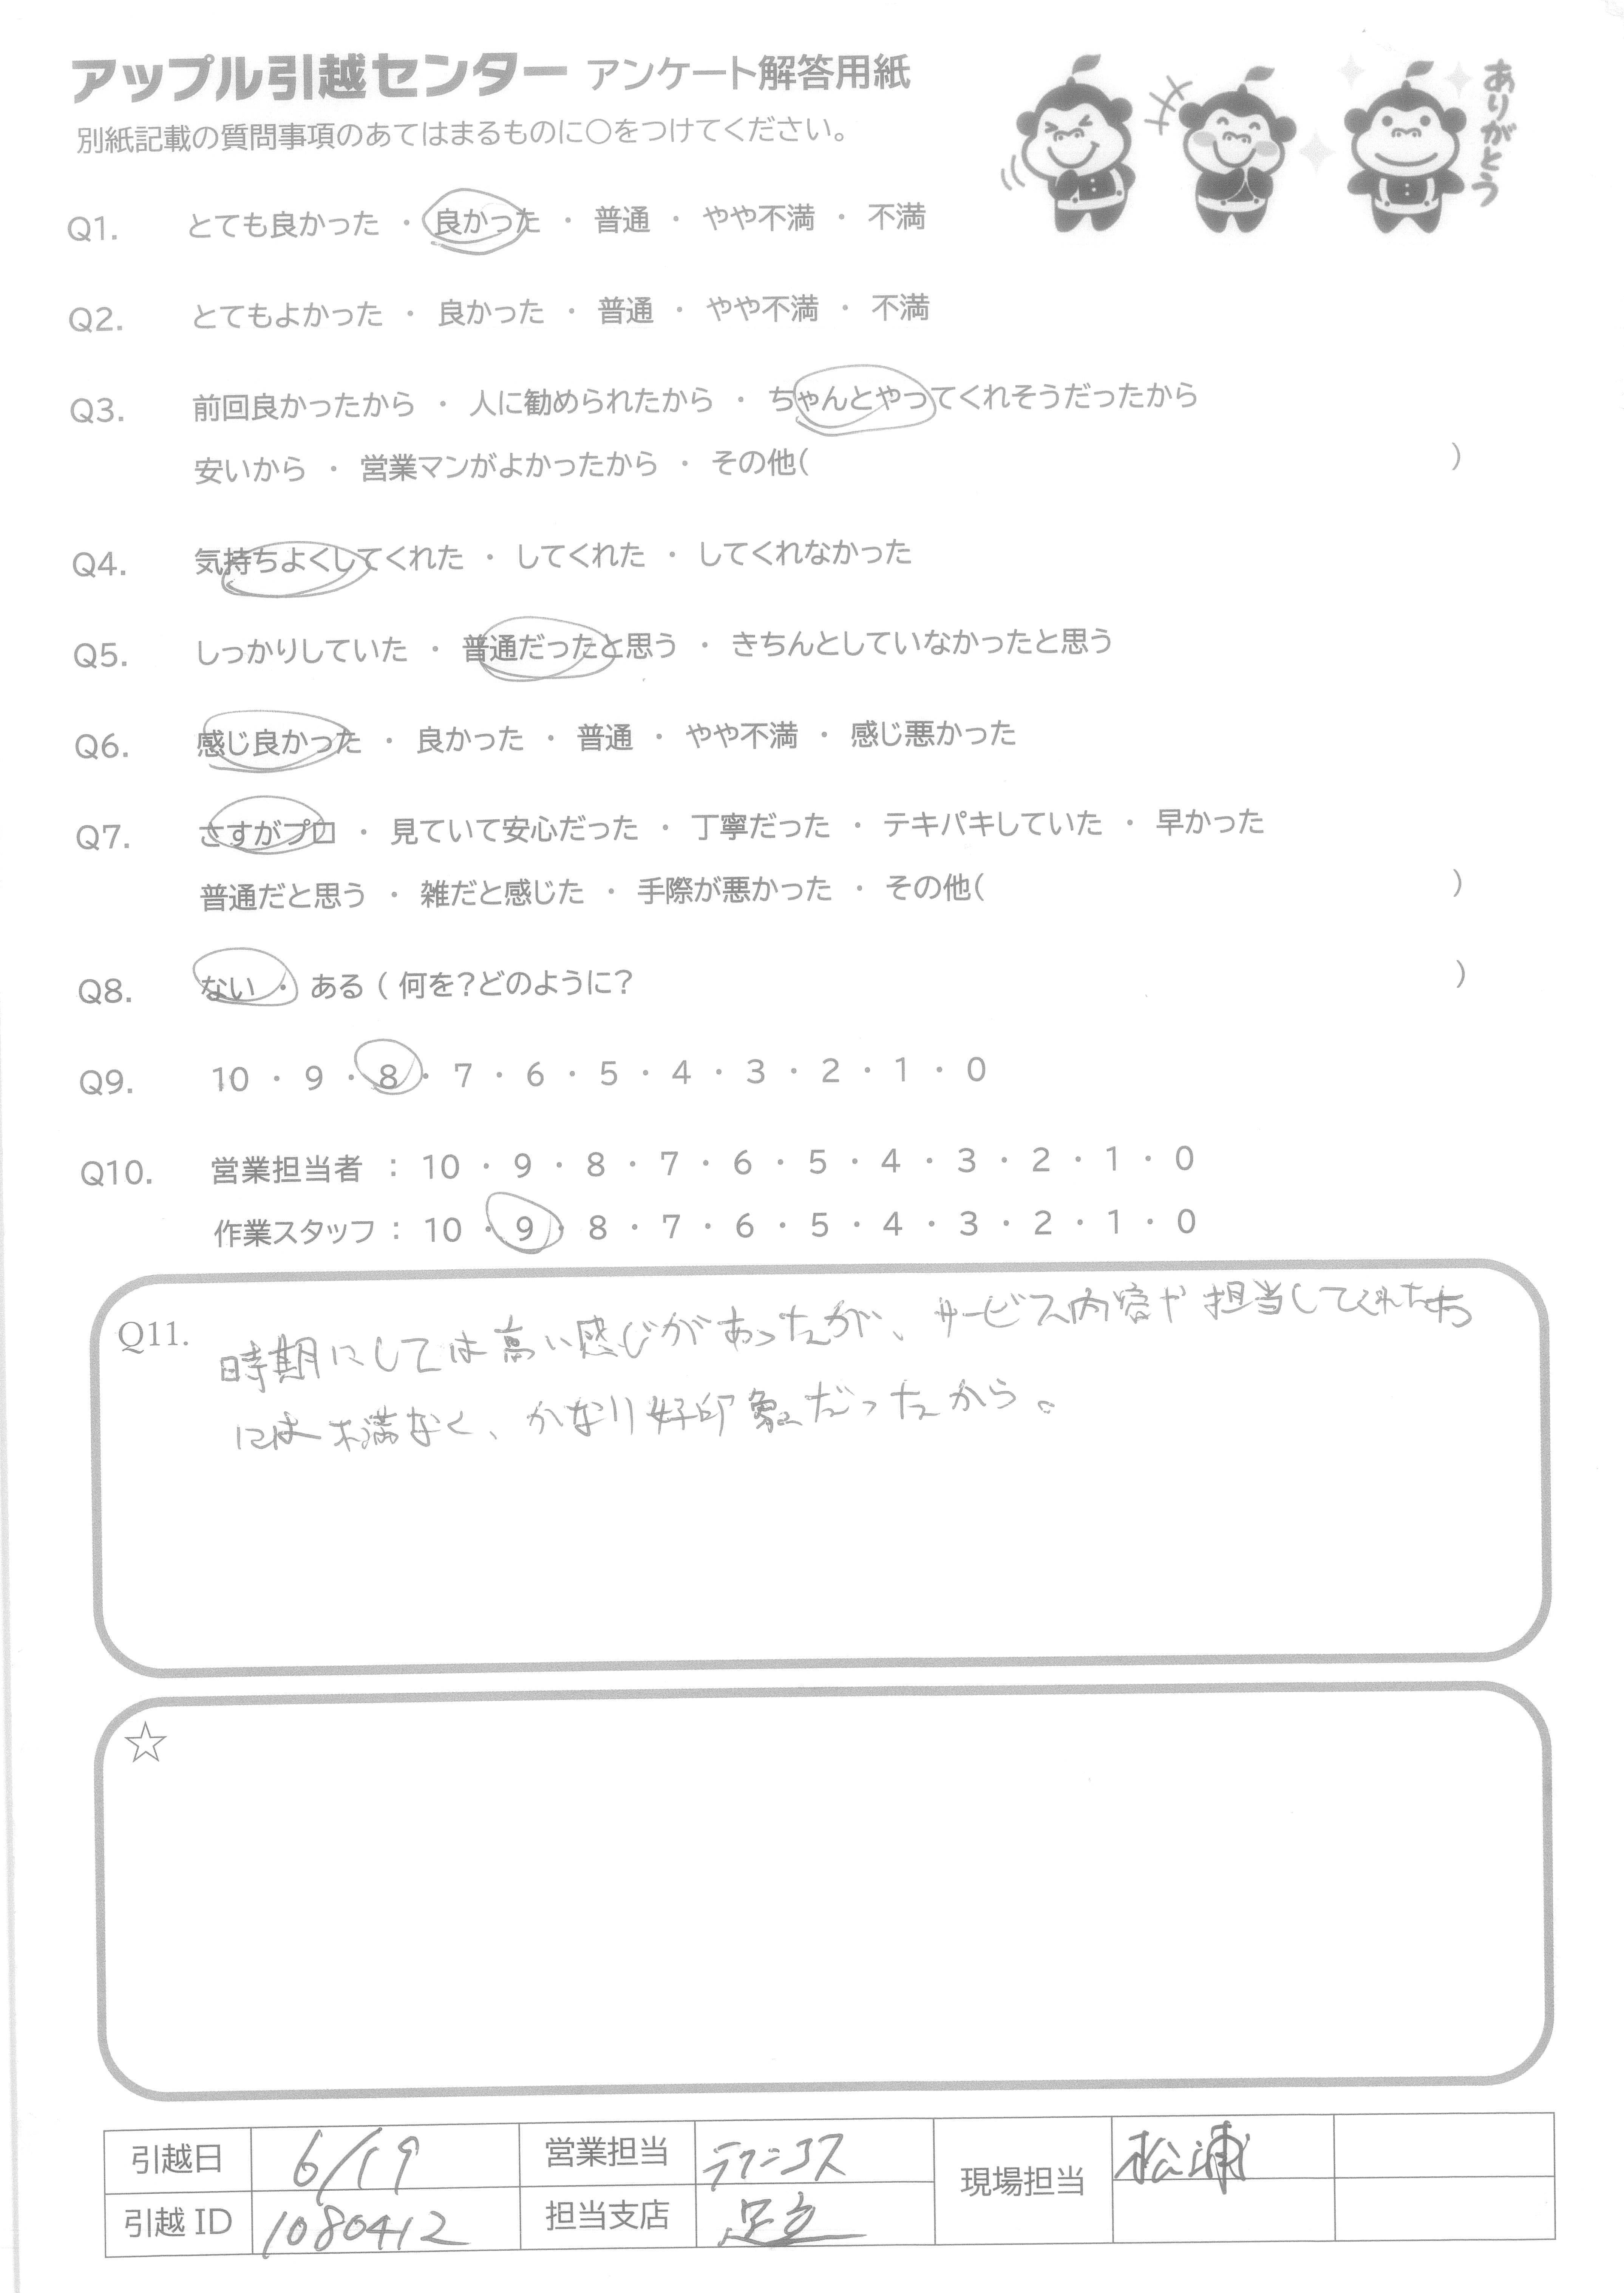 アップル引越センター アンケート解答用紙
ありがとう
別紙記載の質問事項のあてはまるものに○をつけてください。
Q1. とても良かった ・ 良かった ・ 普通 ・ やや不満 ・ 不満
Q2. とてもよかった ・ 良かった ・ 普通 ・ やや不満 ・ 不満
Q3. 前回良かったから ・ 人に勧められたから ・ ちゃんとやってくれそうだったから
安いから ・ 営業マンがよかったから ・ その他( )
Q4. 気持ちよくしてくれた ・ してくれた ・ してくれなかった
Q5. しっかりしていた ・ 普通だったと思う ・ きちんとしていなかったと思う
Q6. 感じ良かった ・ 良かった ・ 普通 ・ やや不満 ・ 感じ悪かった
Q7. さすがプロ ・ 見ていて安心だった ・ 丁寧だった ・ テキパキしていた ・ 早かった
普通だと思う ・ 雑だと感じた ・ 手際が悪かった ・ その他( )
Q8. ない ・ ある ( 何を?どのように? )
Q9. 10 ・ 9 ・ 8 ・ 7 ・ 6 ・ 5 ・ 4 ・ 3 ・ 2 ・ 1 ・ 0
Q10. 営業担当者 : 10 ・ 9 ・ 8 ・ 7 ・ 6 ・ 5 ・ 4 ・ 3 ・ 2 ・ 1 ・ 0
作業スタッフ : 10 ・ 9 ・ 8 ・ 7 ・ 6 ・ 5 ・ 4 ・ 3 ・ 2 ・ 1 ・ 0
Q11. 時期にしては高い感じがあったが、サービス内容や担当してくれた方
には不満なく、かなり好印象だったから。
☆
引越日 6/19 営業担当 現場担当 松浦
引越 ID 1080412 担当支店 足立